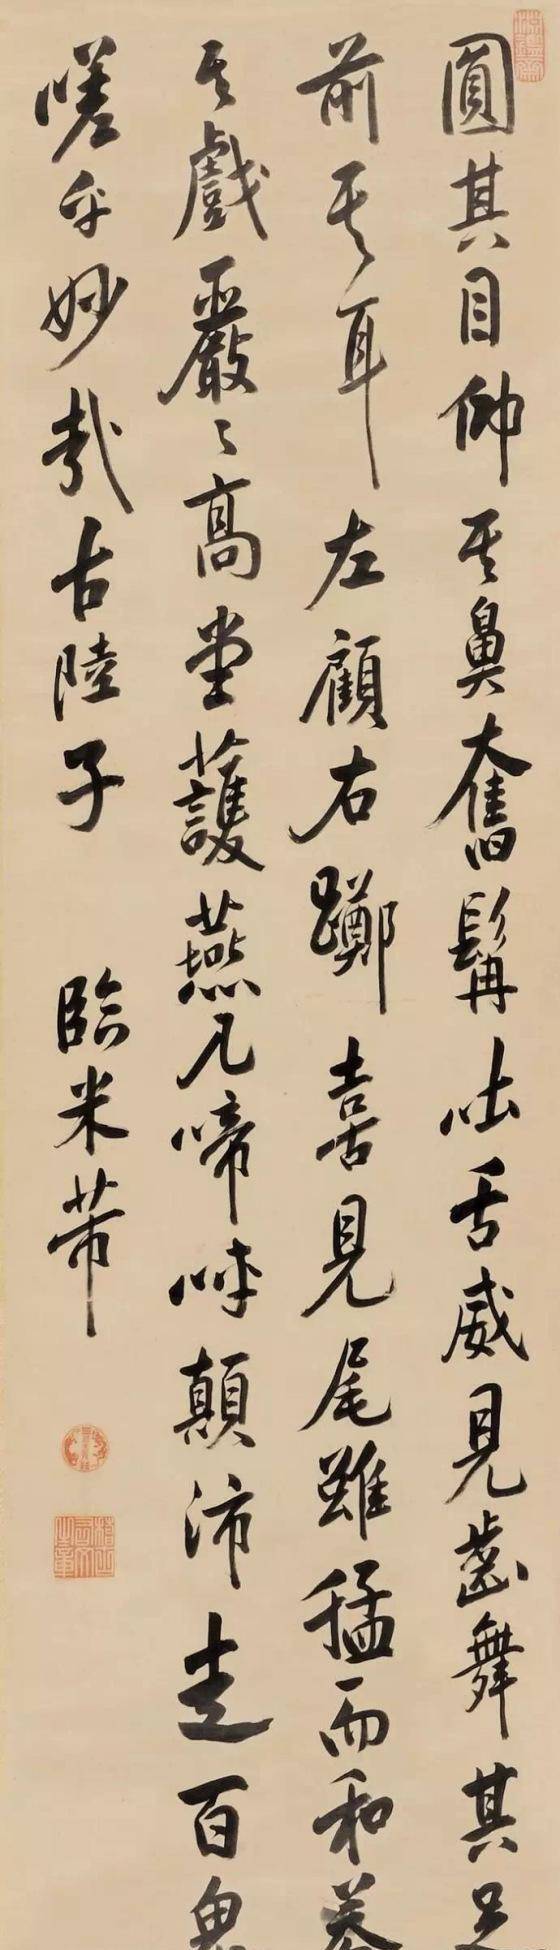 圓其目仰其鼻奮髯吐舌威見齒舞其足
前其耳左顧右躑喜見尾雖猛而和蓋
其戲嚴々高堂護燕几啼呼顛沛走百鬼
嗟乎妙哉古陸子 臨米芾